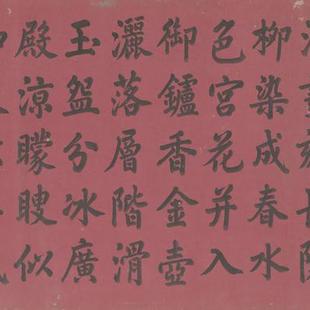 柳染成春水
色宮花并入
御鑪香金壺
灑落層階滑
玉盌分冰廣
殿涼矇瞍似